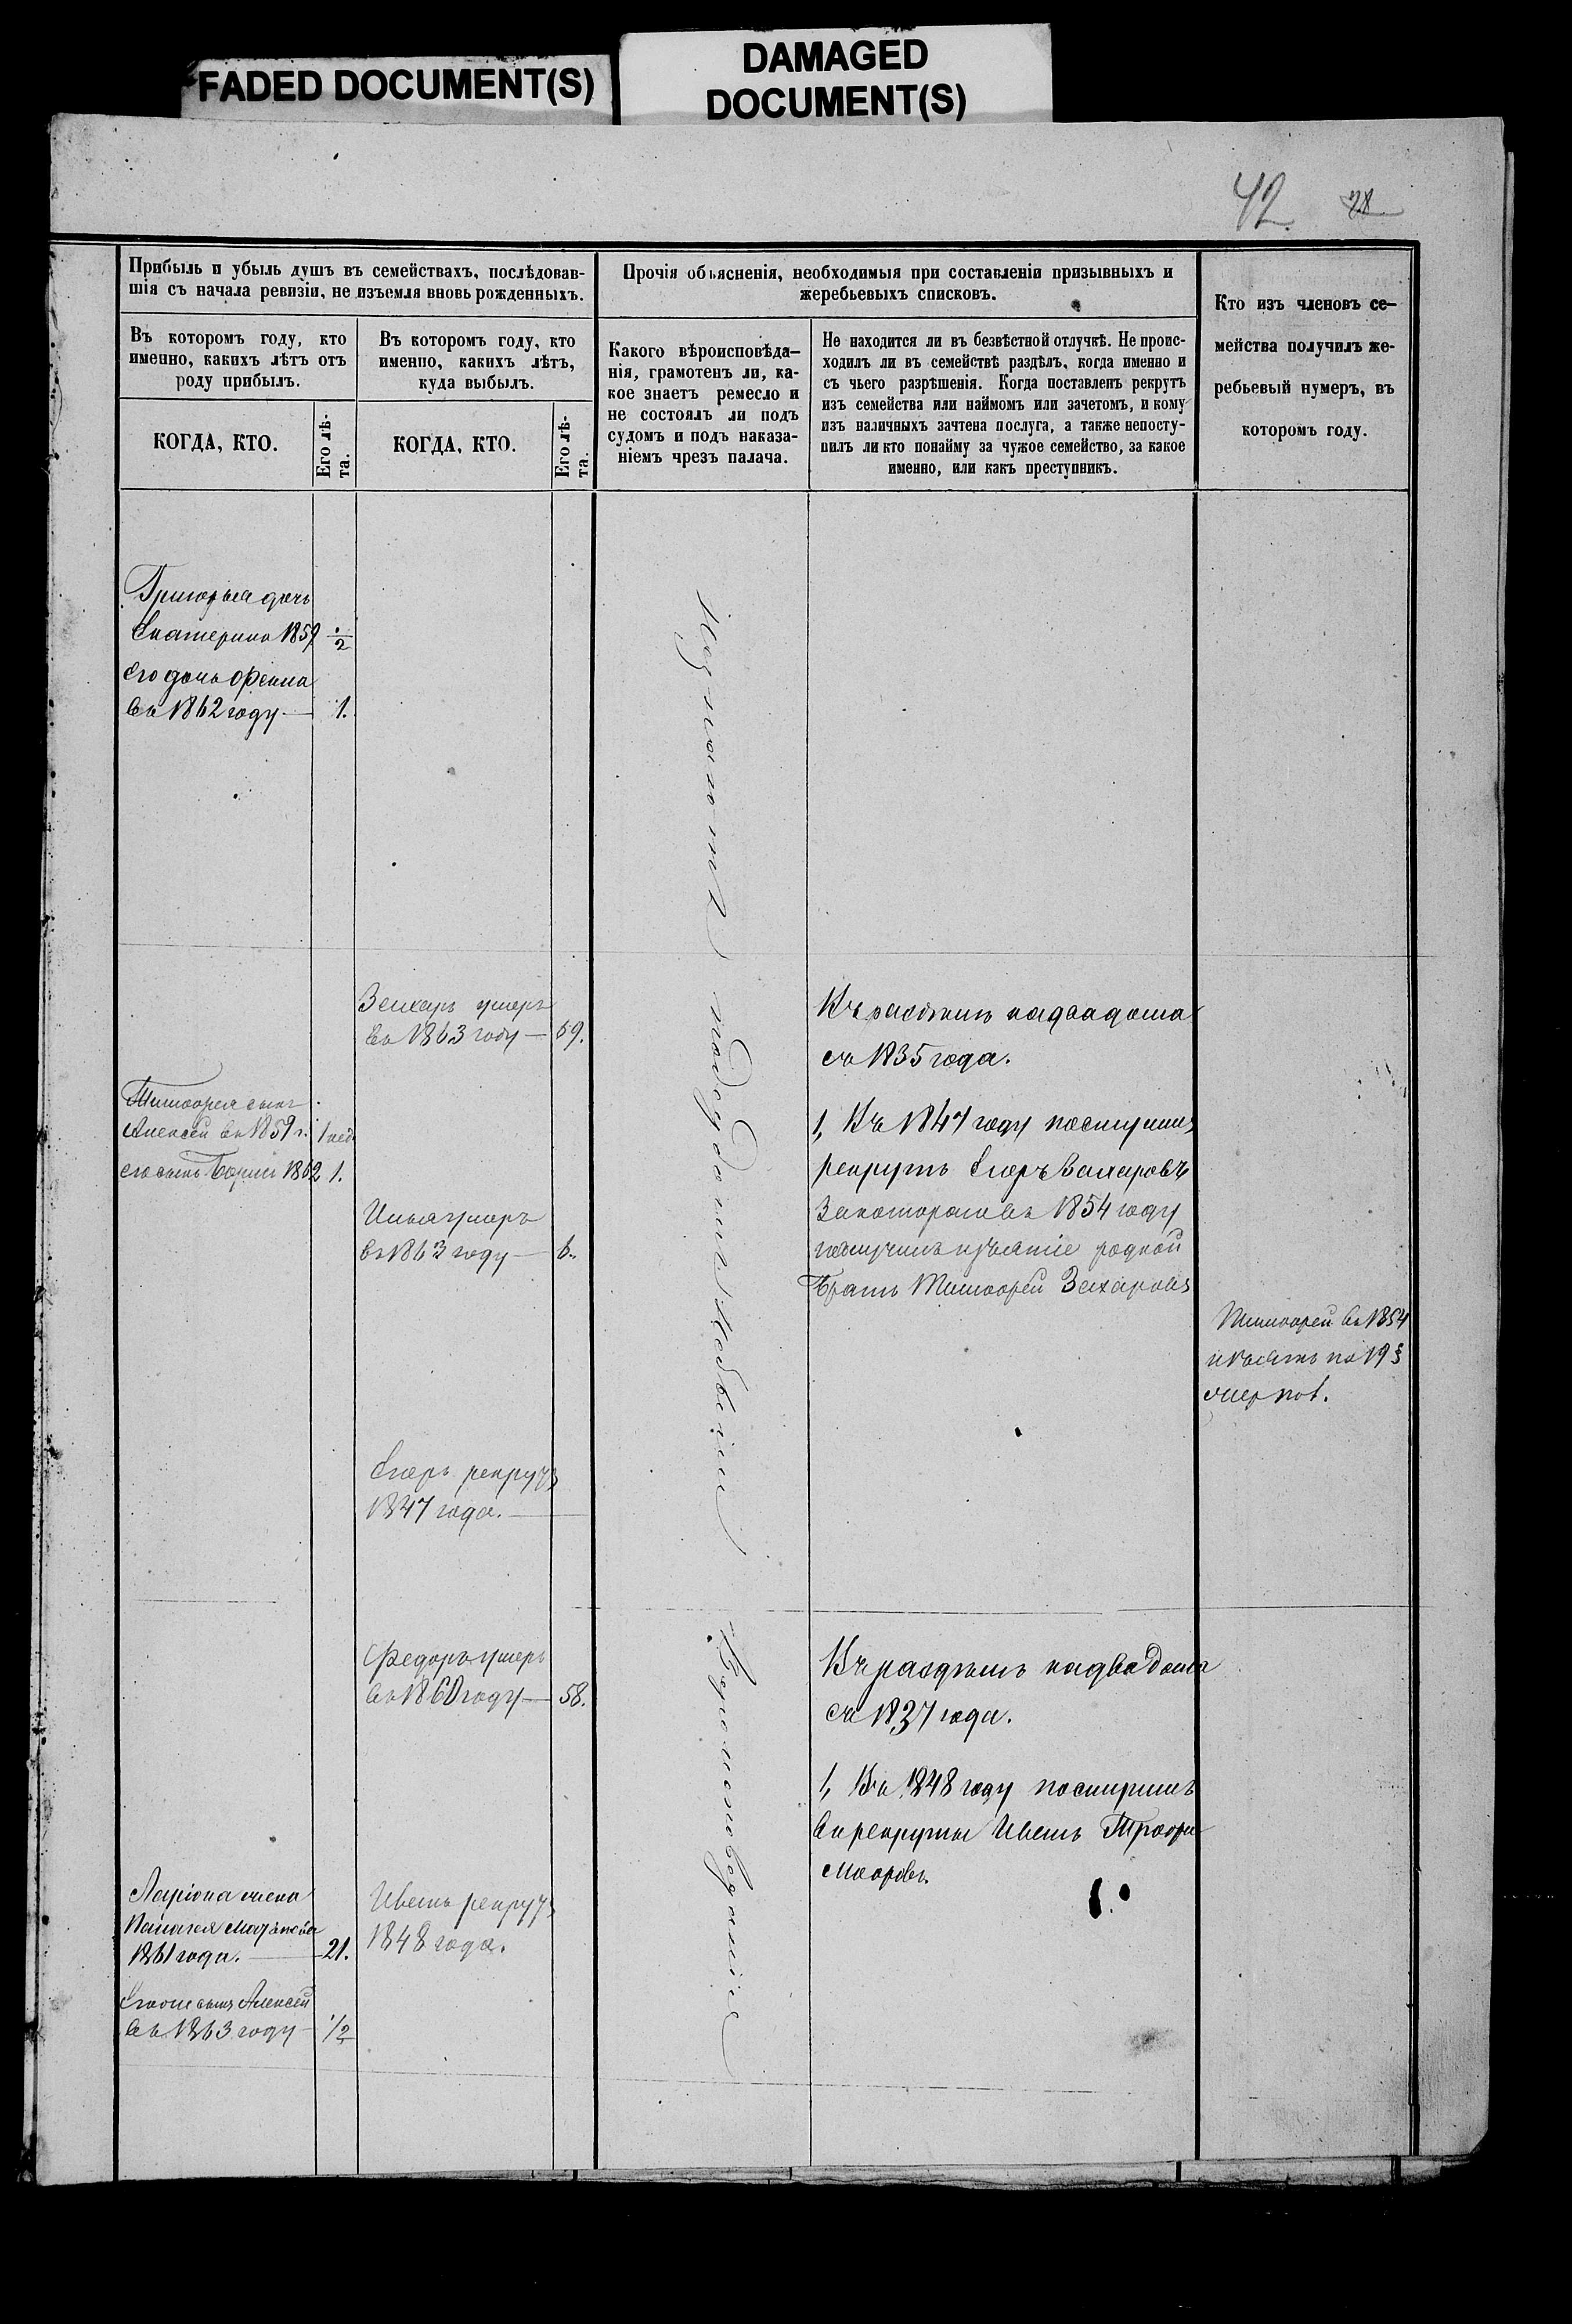 FADED DOCUMENT(S)
DAMAGED
DOCUMENT(S)
42
28
Прибыль и убыль душъ въ семействахъ, послѣдовав-
шія съ начала ревизіи, не изъемля вновь рожденныхъ.
Въ которомъ году, кто
именно, какихъ лѣтъ отъ
роду прибылъ.
КОГДА, КТО.
Его лѣ-
та.
Въ которомъ году, кто
именно, какихъ лѣтъ,
куда выбылъ.
КОГДА, КТО.
Его лѣ-
та.
Прочія объясненія, необходимыя при составленіи призывныхъ и
жеребьевыхъ списковъ.
Какого вѣроисповѣда-
нія, грамотенъ ли, ка-
кое знаетъ ремесло и
не состоялъ ли подъ
судомъ и подъ наказа-
ніемъ чрезъ палача.
Не находится ли въ безвѣстной отлучкѣ. Не проис-
ходилъ ли въ семействѣ раздѣлъ, когда именно и
съ чьего разрѣшенія. Когда поставленъ рекрутъ
изъ семейства или наймомъ или зачетомъ, и кому
изъ наличныхъ зачтена послуга, а также непосту-
пилъ ли кто понайму за чужое семейство, за какое
именно, или какъ преступникъ.
Кто изъ членовъ се-
мейства получилъ же-
ребьевый нумеръ, въ
которомъ году.
Григорья дочь
Екатерина 1859 1/2
Его дочь Офенiа
въ 1862 году — 1.
Захаръ умеръ
въ 1863 году — 69.
Въ раздѣлѣ надвадома
съ 1835 года.
Тимоѳея сынъ
Алексей въ 1859 г. 1 нед
его сынъ Борисъ 1862 1.
1, Въ 1847 году поступилъ
рекрутъ Егоръ Захаровъ
Закотораго въ 1854 году
получилъ изъятіе родной
Братъ Тимоѳей Захаровъ
Илья умеръ
въ 1863 году — 6.
Тимоѳей въ 1854
изъятъ по 193
Егоръ рекрутъ
1847 года. —
Федоръ умеръ
въ 1860 году — 58.
Въ раздѣлѣ надва дома
съ 1837 года.
1, Въ 1848 году поступилъ
въ рекруты Иванъ
Ларіона жена
1861 года. — 21.
Иванъ рекрутъ
1848 года.
Егоже сынъ Алексей
въ 1863 году — 1/2